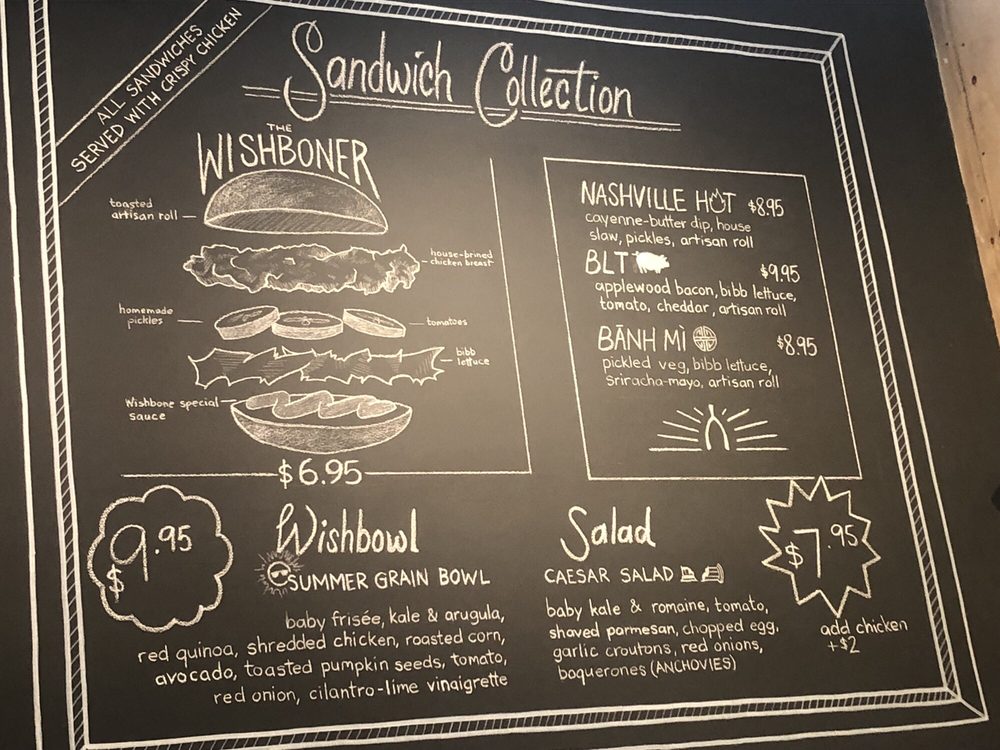 ALL SANDWICHES
SERVED WITH CRISPY CHICKEN
Sandwich Collection
THE
WISHBONER
toasted
artisan roll
house-brined
chicken breast
homemade
pickles
tomatoes
bibb
lettuce
Wishbone special
sauce
$6.95
NASHVILLE HOT $8.95
cayenne-butter dip, house
slaw, pickles, artisan roll
BLT $9.95
applewood bacon, bibb lettuce,
tomato, cheddar, artisan roll
BĀNH MÌ $8.95
pickled veg, bibb lettuce,
sriracha-mayo, artisan roll
$9.95
Wishbowl
SUMMER GRAIN BOWL
baby frisée, kale & arugula,
red quinoa, shredded chicken, roasted corn,
avocado, toasted pumpkin seeds, tomato,
red onion, cilantro-lime vinaigrette
Salad
$7.95
CAESAR SALAD
baby kale & romaine, tomato,
shaved parmesan, chopped egg,
garlic croutons, red onions,
boquerones (ANCHOVIES)
add chicken
+$2